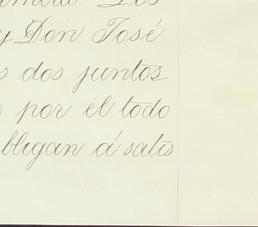 y Don José
s dos juntos
s por el todo
obligan á satis